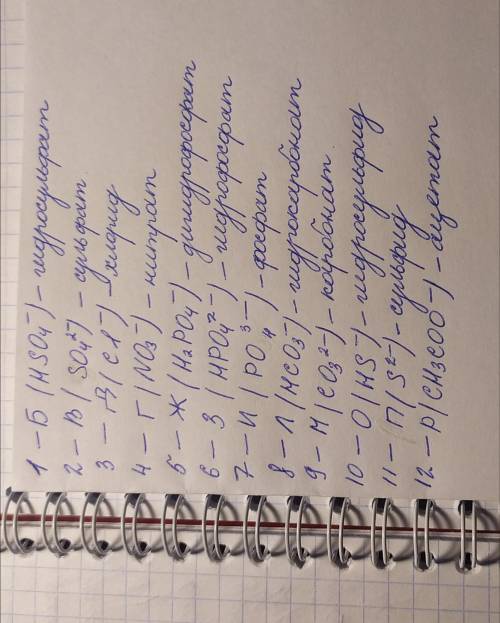 1 – Б (HSO₄⁻) – гидросульфат
2 – В (SO₄²⁻) – сульфат
3 – Д (Cl⁻) – хлорид
4 – Г (NO₃⁻) – нитрат
5 – Ж (H₂PO₄⁻) – дигидрофосфат
6 – З (HPO₄²⁻) – гидрофосфат
7 – И (PO₄³⁻) – фосфат
8 – Л (HCO₃⁻) – гидрокарбонат
9 – М (CO₃²⁻) – карбонат
10 – О (HS⁻) – гидросульфид
11 – П (S²⁻) – сульфид
12 – Р (CH₃COO⁻) – ацетат